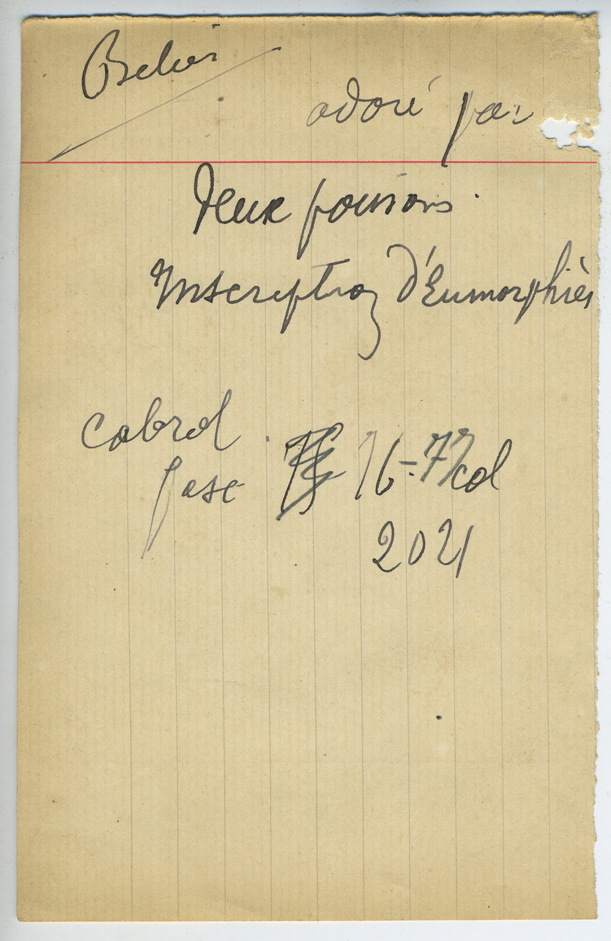 Belier
adoré par
deux poissons.
Inscription d'Eumorphiès
Cabrol.
fasc 76-77 col
2021